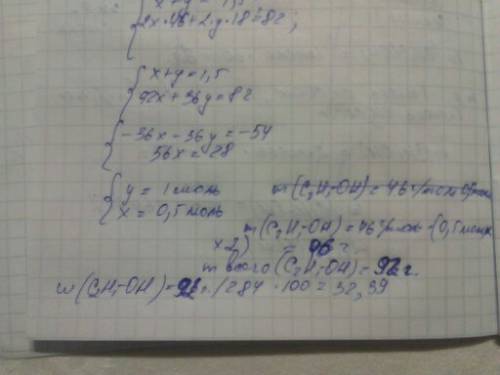 x+y=1,5
2x·46+2·y·18=82;
x+y=1,5
92x+36y=82
-36x-36y=-54
56x=28
y=1 моль
x=0,5 моль
m(C₂H₅OH)=46 г/моль
m(C₂H₅OH)=46 г/моль·(0,5 моль
x2)
m всего (C₂H₅OH)=92 г.
w(C₂H₅OH)=92 г./284·100=32,39